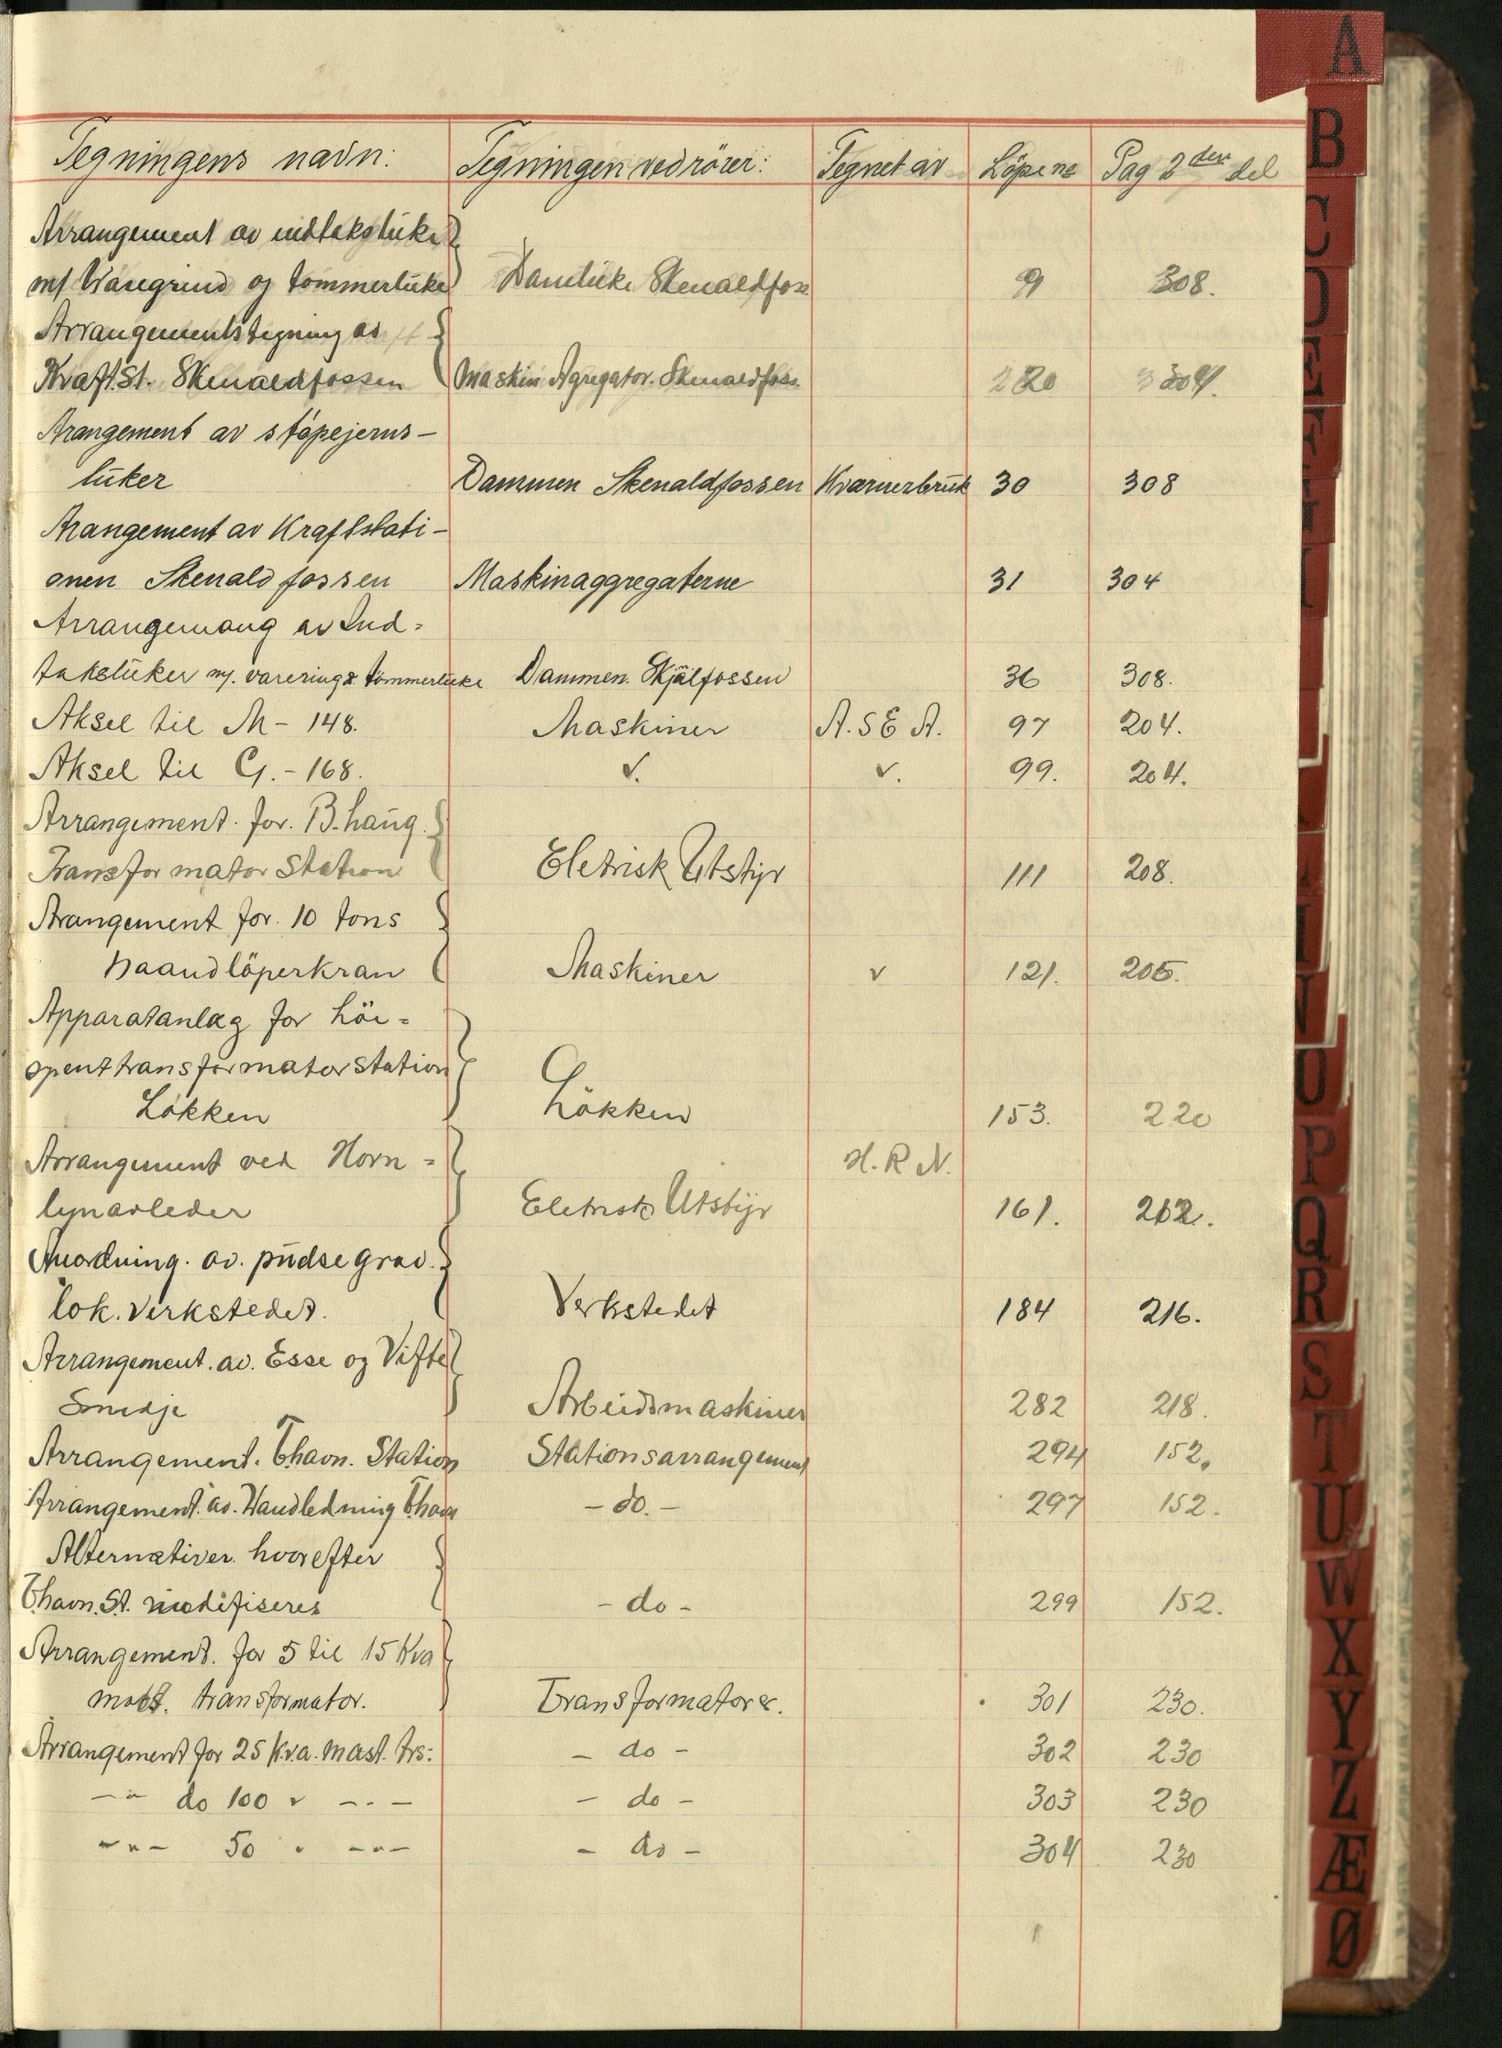 Tegningens navn: Tegningen vedrörer: Tegnet av Löpe nr Pag 2 den del
Arrangement av indtaksluke
m/ Varegrind og tömmerluke Damluke Skenaldfoss 9 308.
Arrangementstegning av
Kraft.St. Skenaldfossen Maskin Agregator. Skenaldfoss 20 304.
Arangement av støpejerns-
luker Dammen Skenaldfossen Kværnerbruk 30 308
Arangement av Kraftstati-
onen Skenaldfossen Maskinaggregaterne 31 304
Arrangemang av Ind=
taksluker m/. varering & tömmerluke Dammen. Skjälfossen 36 308.
Aksel til M- 148. Maskiner A.S E A. 97 204.
Aksel til G.- 168. v. v. 99. 204.
Arrangement. for. B.haug.
Transformator Station Eletrisk Utstyr 111 208.
Arangement for. 10 tons
haandlöperkran Maskiner v 121. 205.
Apparatanlæg for höi=
spenttransformatorstation
Løkken Løkken 153. 220
Arrangement ved Horn=
lynavleder Eletrisk Utstyr H.R N. 161. 212.
Anordning. av. pudsegrav.
lok. verkstedet. Verkstedet 184 216.
Arrangement. av. Esse og Vifte
Smedje Arbeidsmaskiner 282 218.
Arrangement. T.havn. Station Stationsarrangement 294 152.
Arrangement. av. Vandledning T.havn - do. - 297 152.
Alternativer. hvorefter
T.havn. St. modifiseres - do - 299 152.
Arrangement. for 5 til 15 Kva
mast. transformator. Transformatorer. 301 230.
Arrangement for 25 K.v.a. mast. trs: - do - 302 230
-"- do 100 " -"- - do - 303 230
-"- 50 " -"- - do - 304 230
A
B
C
D
E
O
P
Q
R
S
T
U
W
X
Y
Z
Æ
Ø